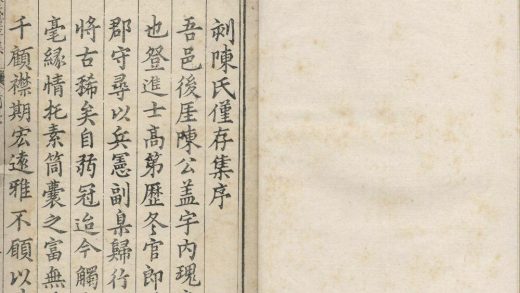 刻陳氏僅存集序
吾邑後厓陳公蓋宇内瑰
也登進士髙第歴冬官郎
郡守尋以兵憲副臬歸行
將古稀矣自弱冠迨今觸
毫縁情托素筒囊之富無
千顧襟期宏逺雅不願以